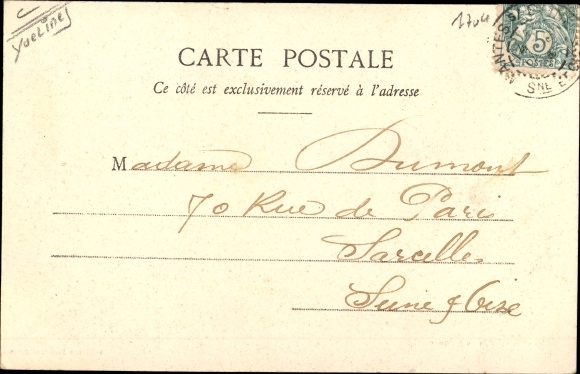 Yveline
1704
5c
POSTES
MANTES
SNE E
CARTE POSTALE
Ce côté est exclusivement réservé à l'adresse
Madame Dumont
70 Rue de Paris
Sarcelles
Seine & Oise